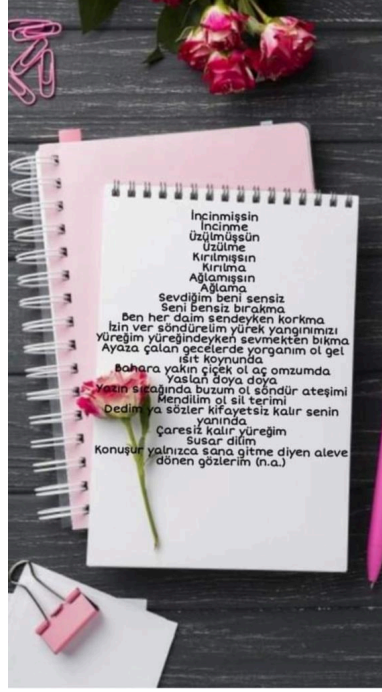 İncinmişsin
İncinme
Üzülmüşsün
Üzülme
Kırılmışsın
Kırılma
Ağlamışsın
Ağlama
Sevdiğim beni sensiz
Seni bensiz bırakma
Ben her daim sendeyken korkma
İzin ver söndürelim yürek yangınımızı
Yüreğim yüreğindeyken sevmekten bıkma
Ayaza çalan gecelerde yorganım ol gel
ısıt koynunda
Bahara yakın çiçek ol aç omzumda
Yaslan doya doya
Yazın sıcağında buzum ol söndür ateşimi
Mendilim ol sil terimi
Dedim ya sözler kifayetsiz kalır senin
yanında
Çaresiz kalır yüreğim
Susar dilim
Konuşur yalnızca sana gitme diyen aleve
dönen gözlerim (n.a.)